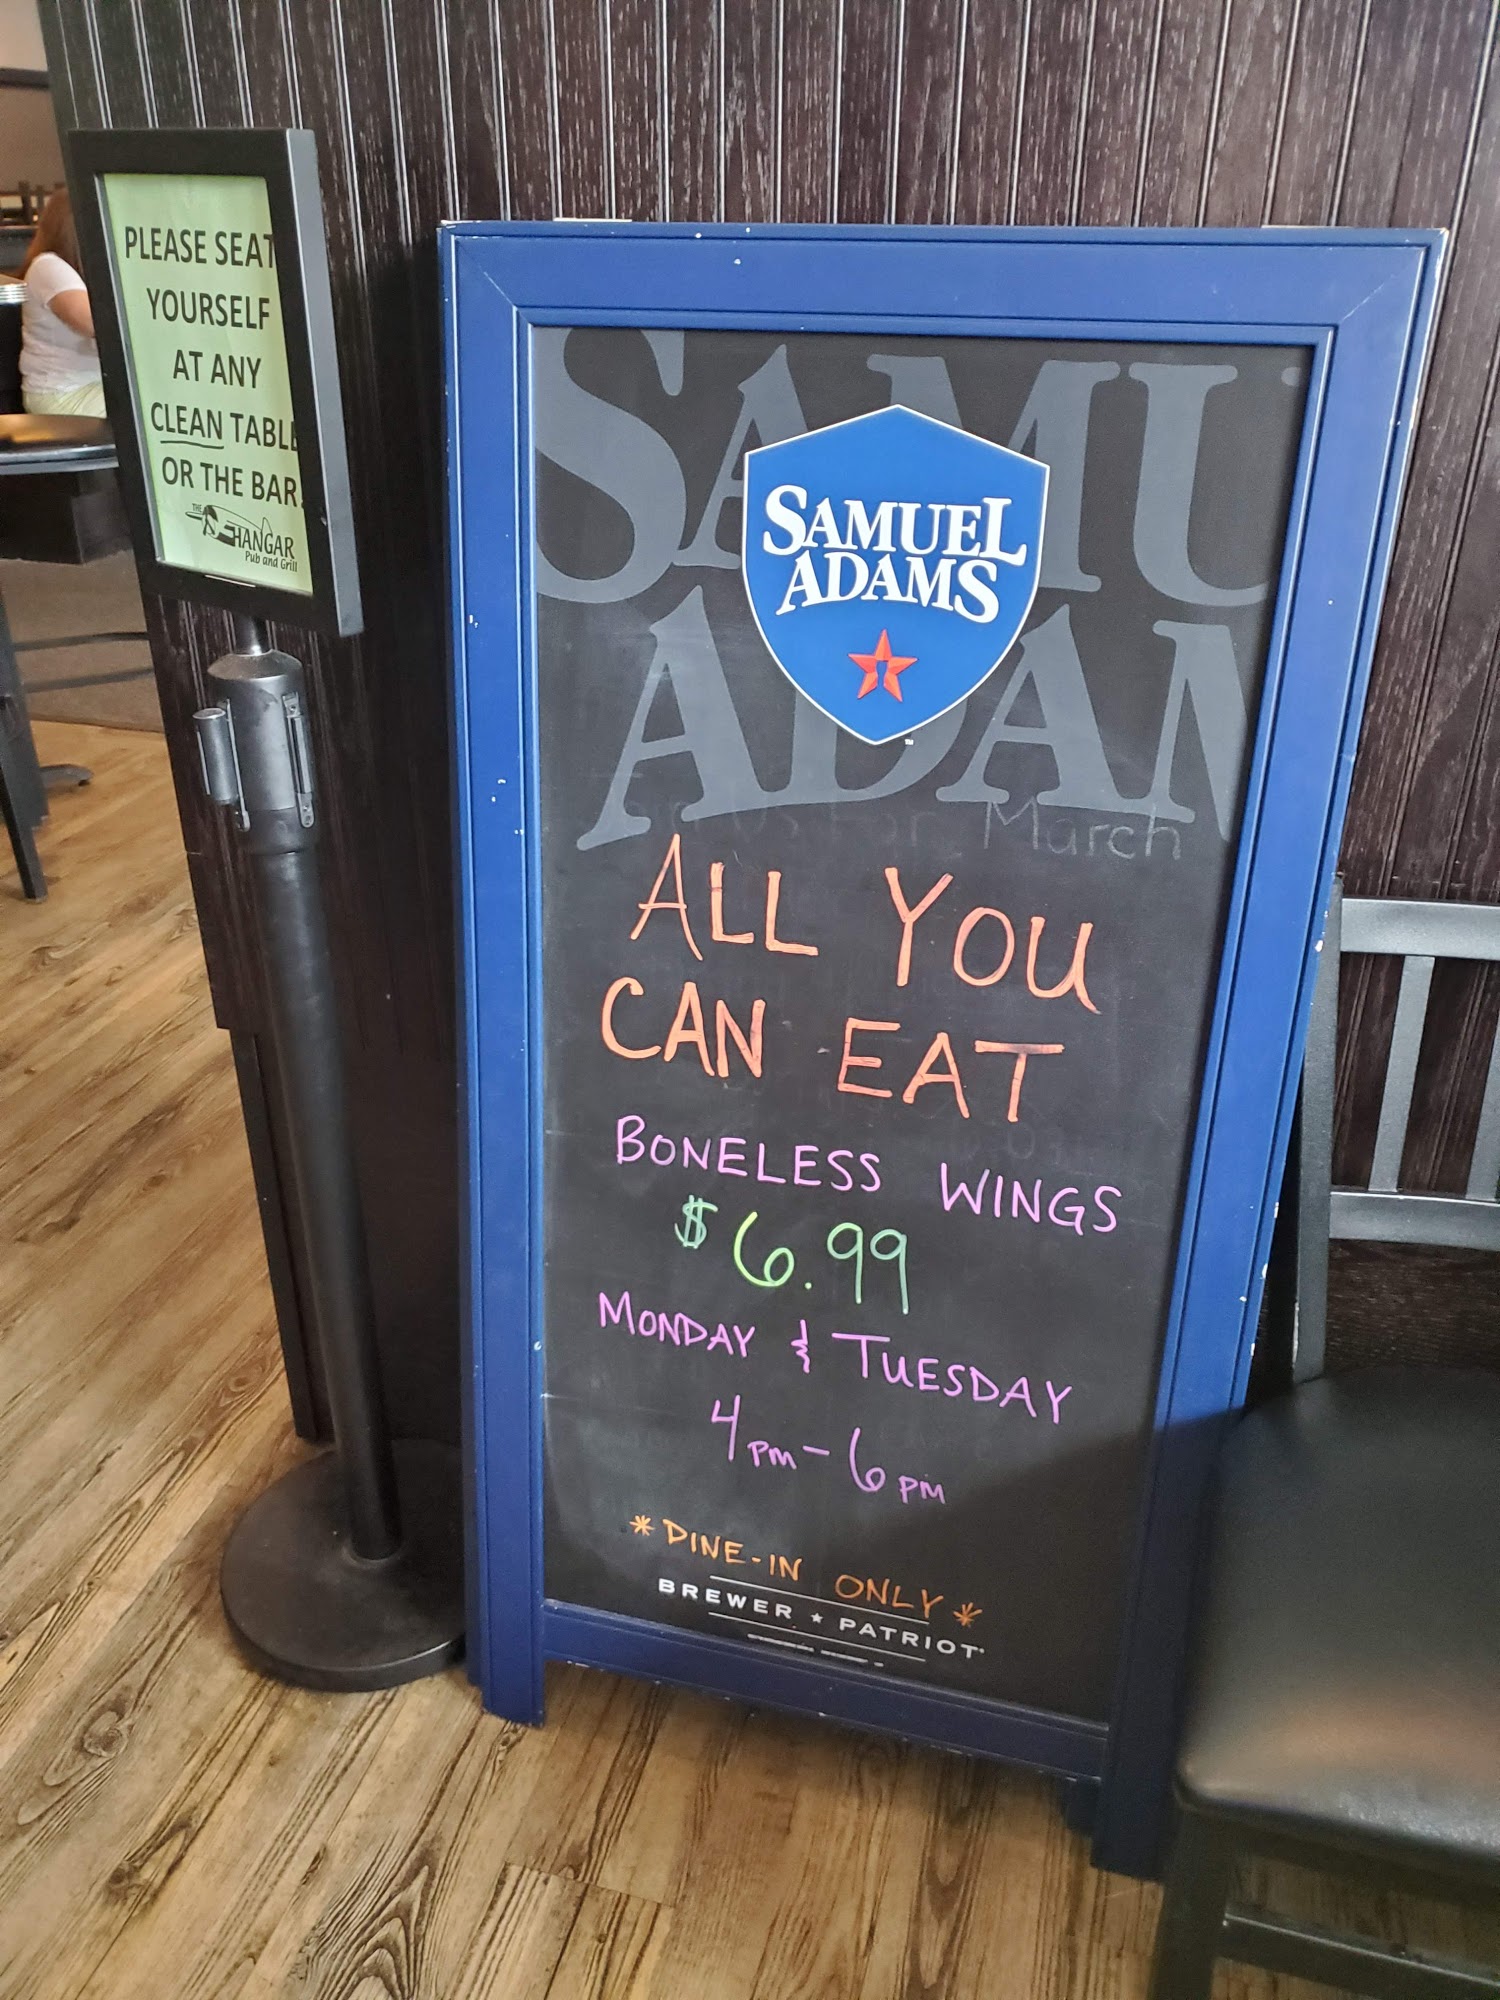 PLEASE SEAT
YOURSELF
AT ANY
CLEAN TABLE
OR THE BAR
THE
HANGAR
Pub and Grill
SAMU
ADAM
SAMUEL
ADAMS
For March
ALL YOU
CAN EAT
BONELESS WINGS
$6.99
MONDAY & TUESDAY
4PM - 6PM
*DINE-IN ONLY*
BREWER ★ PATRIOT